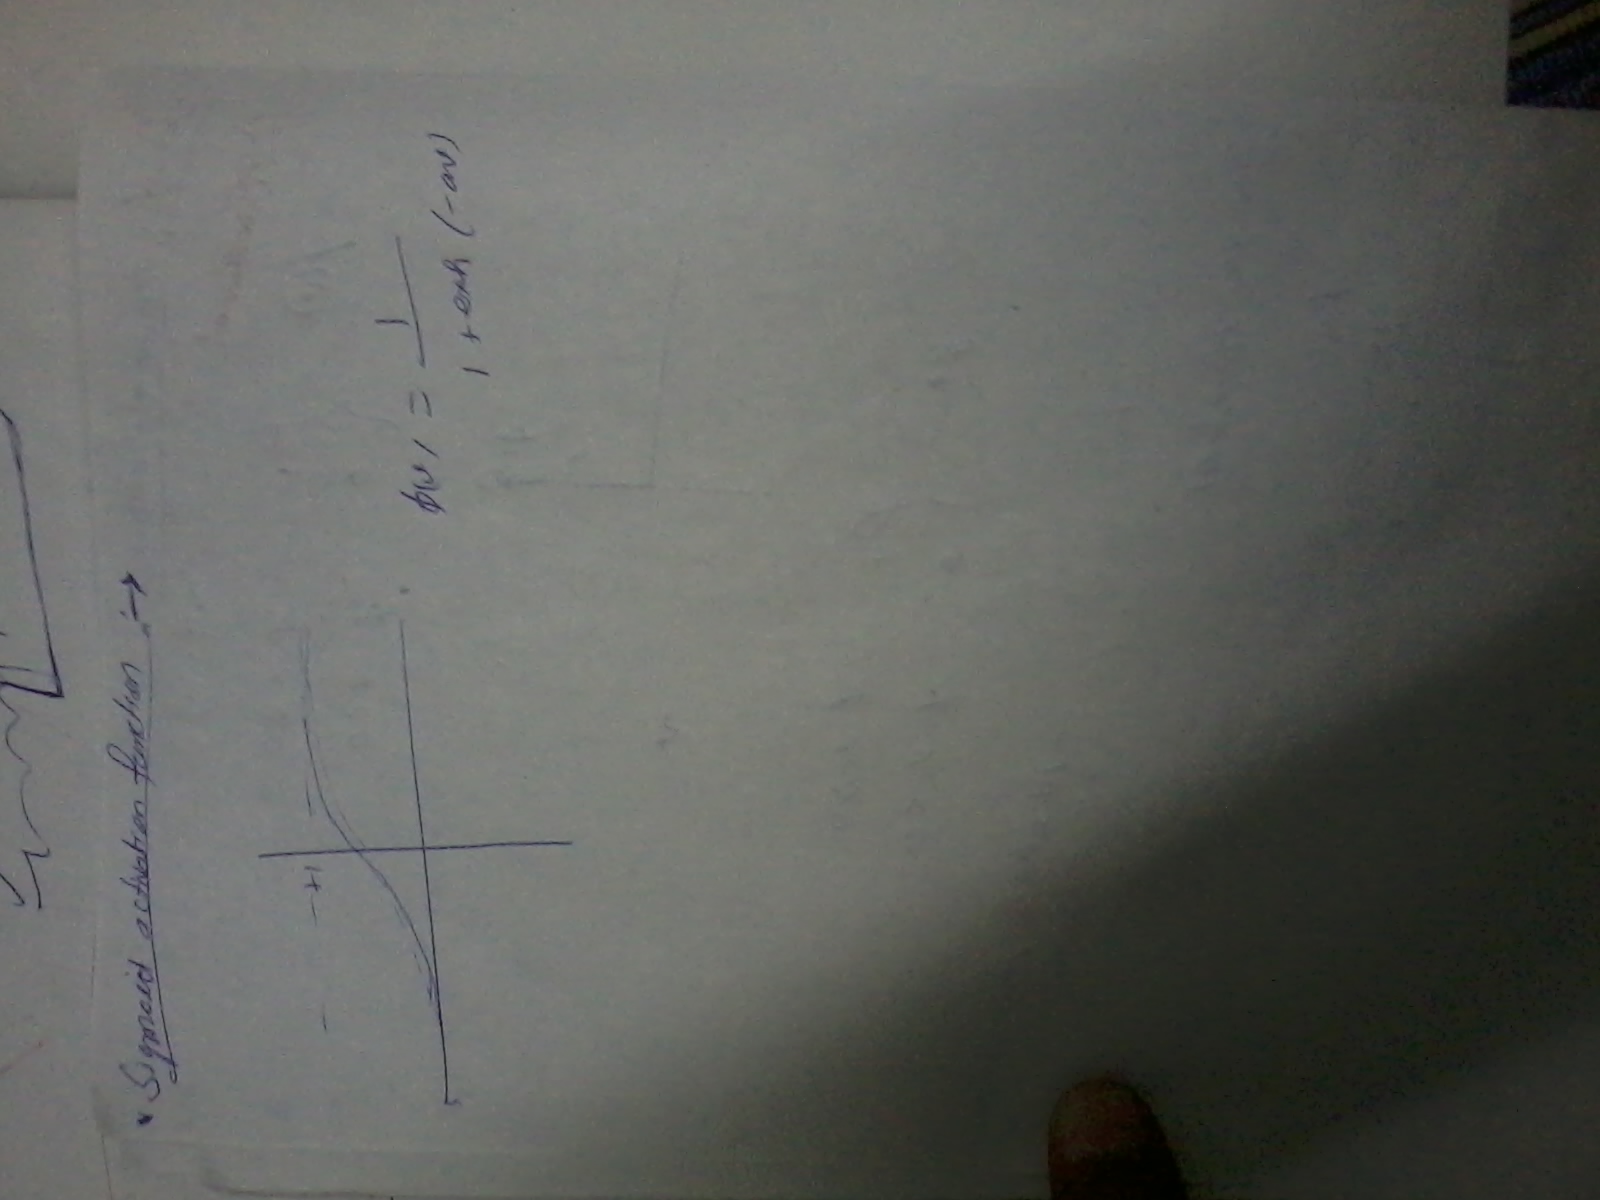 * Sigmoid activation function :→
+1
φ(v) = 1
1 + exp (-av)